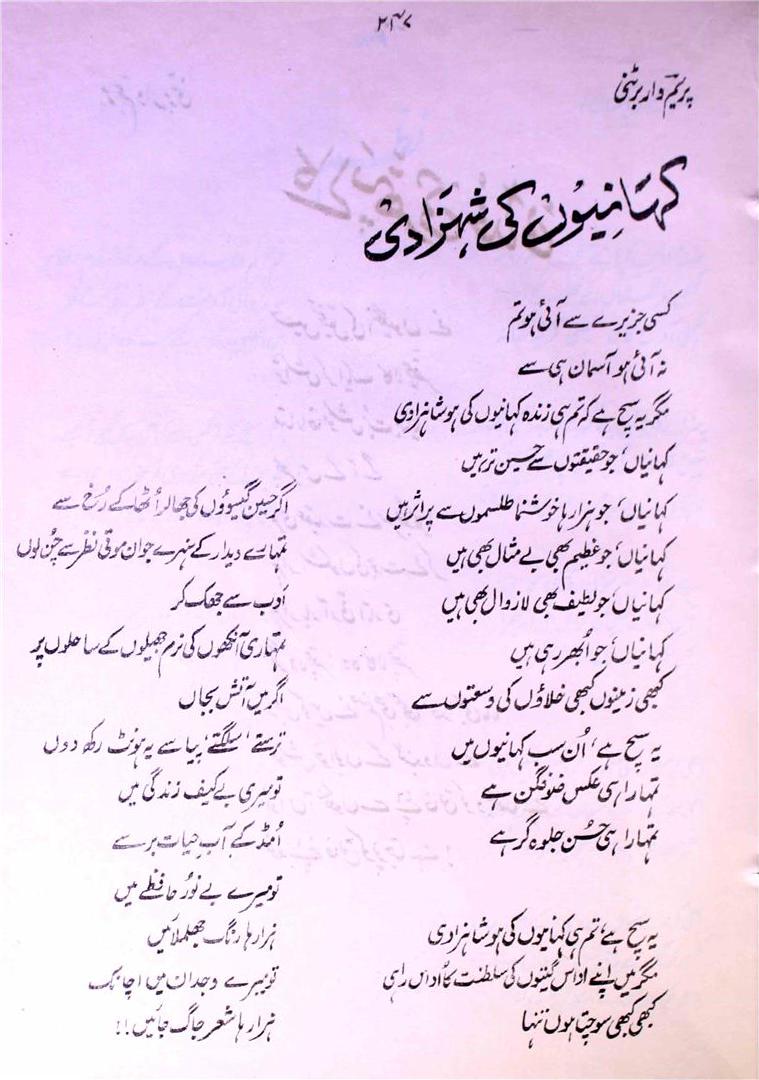 ۲۴۷
پریم وار برٹنی
کہانیوں کی شہزادی
کسی جزیرے سے آئی ہو تم
نہ آئی ہو آسمان ہی سے
مگر یہ سچ ہے کہ تم ہی زندہ کہانیوں کی ہو شاہزادی
کہانیاں، جو حقیقتوں سے حسین تر ہیں
کہانیاں، جو ہزار ہا خوشنما طلسموں سے پر اثر ہیں
کہانیاں، جو عظیم بھی بے مثال بھی ہیں
کہانیاں، جو لطیف بھی لازوال بھی ہیں
کہانیاں، جو اُبھر رہی ہیں
کبھی زمینوں کبھی خلاؤں کی وسعتوں سے
یہ سچ ہے، اُن سب کہانیوں میں
تمہارا ہی عکس ضو فگن ہے
تمہارا ہی حُسن جلوہ گر ہے
یہ سچ ہے، تم ہی کہانیوں کی ہو شاہزادی
مگر میں اپنے اداس گیتوں کی سلطنت کا اُداس راہی
کبھی کبھی سوچتا ہوں تنہا
اگر حسین گیسوؤں کی جھالر اُٹھا کے رُخ سے
تمہارے دیدار کے سنہرے جوان موتی نظر سے چُن لوں
اَدب سے جھک کر
تمہاری آنکھوں کی نرم جھیلوں کے ساحلوں پر
اگر میں آتش بجاں
ترستے، سلگتے، پیاسے یہ ہونٹ رکھ دوں
تو میری بے کیف زندگی میں
اُمڈ کے آبِ حیات برسے
تو میرے بے نُور حافظے میں
ہزار ہا رنگ جھلملائیں
تو میرے وجدان میں اچانک
ہزار ہا شعر جاگ جائیں !!